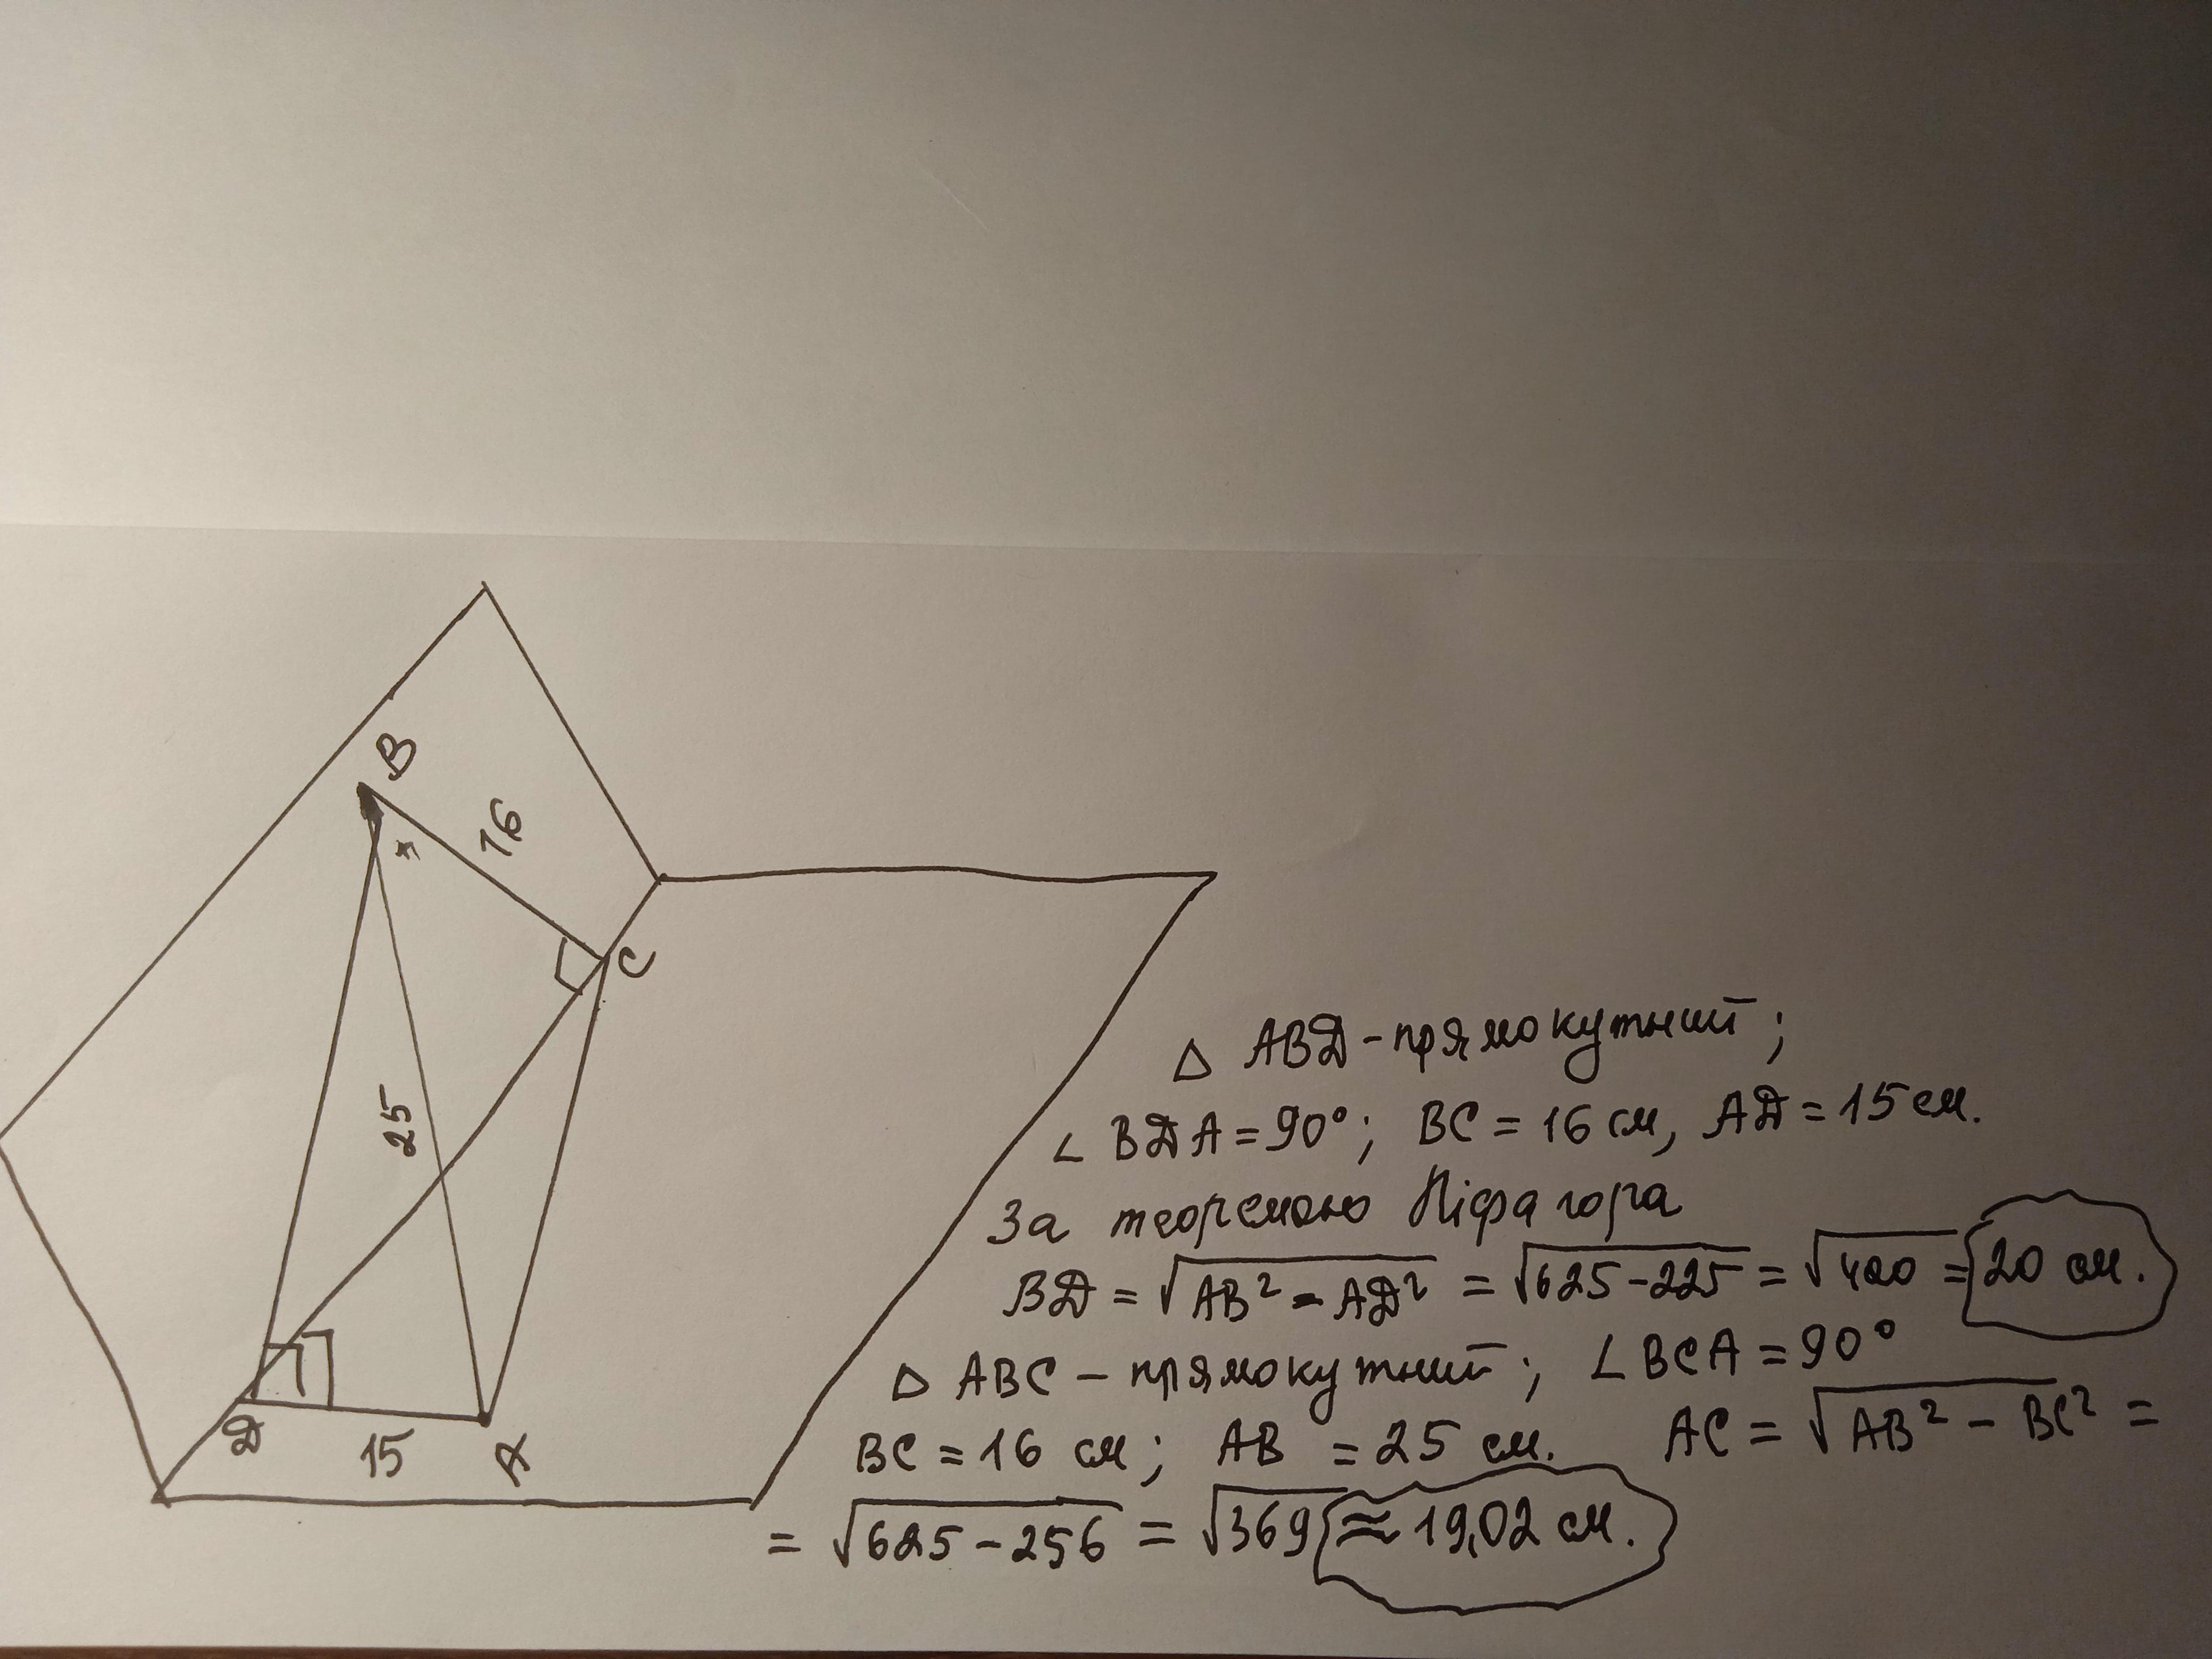 B
16
x
C
25
D
15
A
△ ABD - прямокутний;
∠ BDA = 90°; BC = 16 см, AD = 15 см.
За теоремою Піфагора
BD = √AB² - AD² = √625-225 = √400 = 20 см.
△ ABC - прямокутний; ∠BCA = 90°
BC = 16 см; AB = 25 см. AC = √AB² - BC² =
= √625-256 = √369 ≈ 19,02 см.